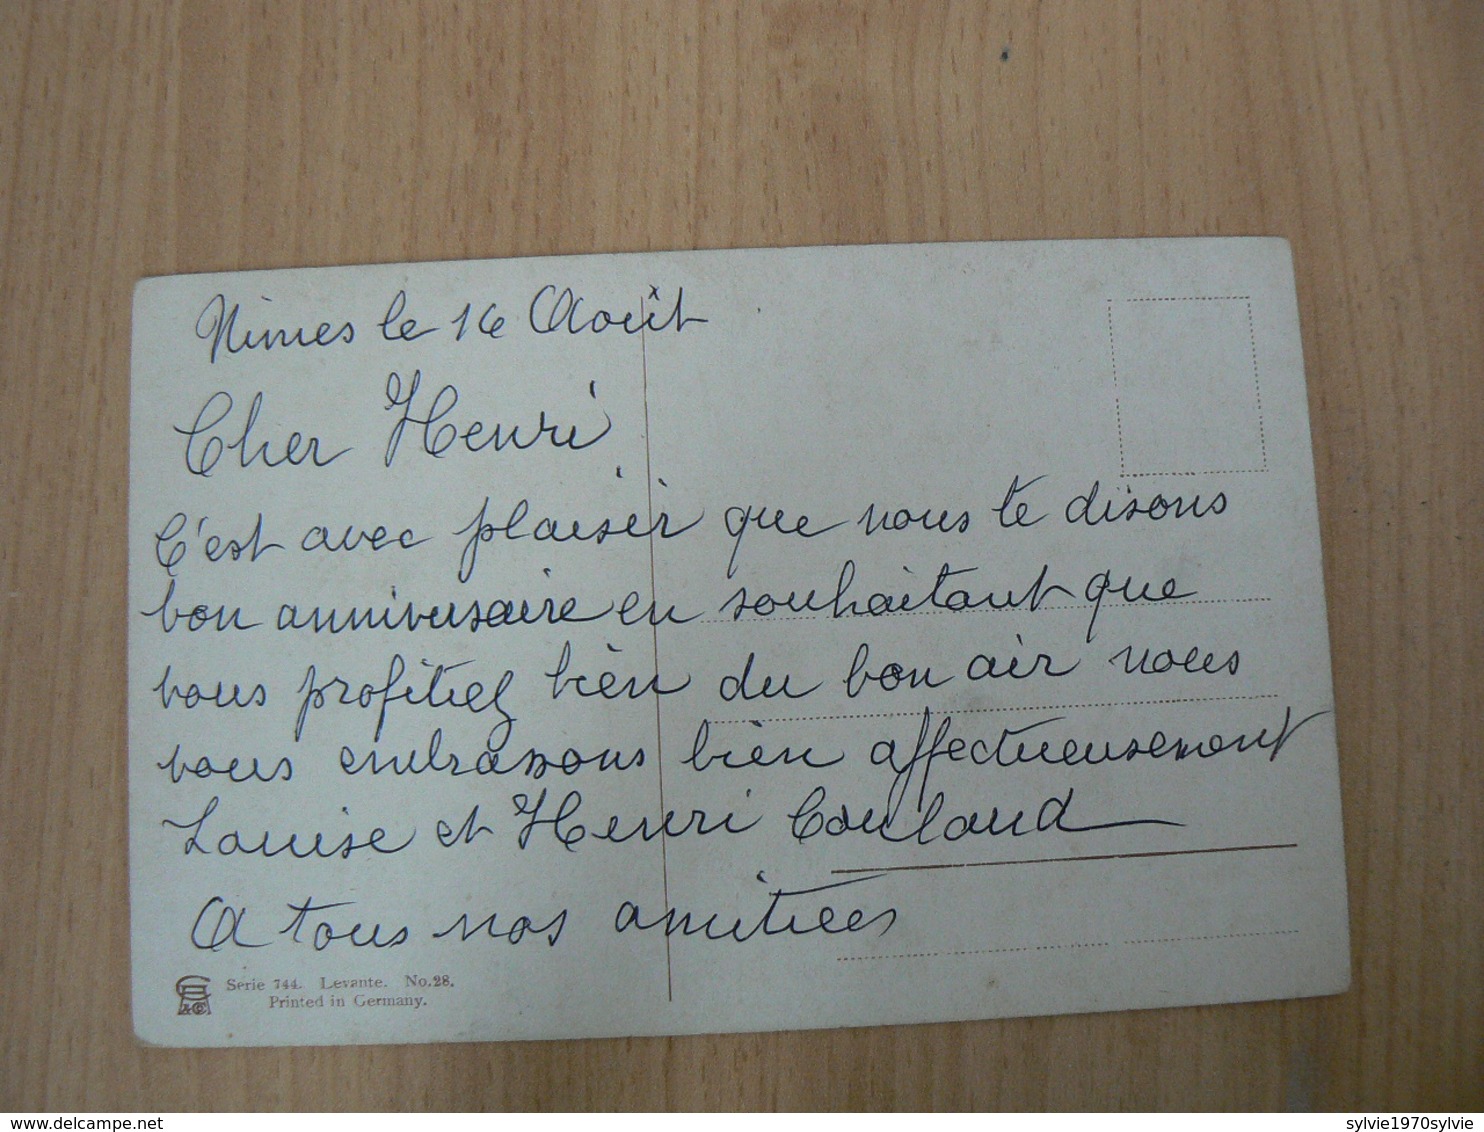 Nimes le 16 Août
Cher Henri
C'est avec plaisir que nous te disons
bon anniversaire en souhaitant que
vous profitiez bien du bon air nous
vous embrassons bien affectueusement
Louise et Henri Couland
A tous nos amitiées
Serie 744. Levante. No.28.
Printed in Germany.
sylvie1970sylvie